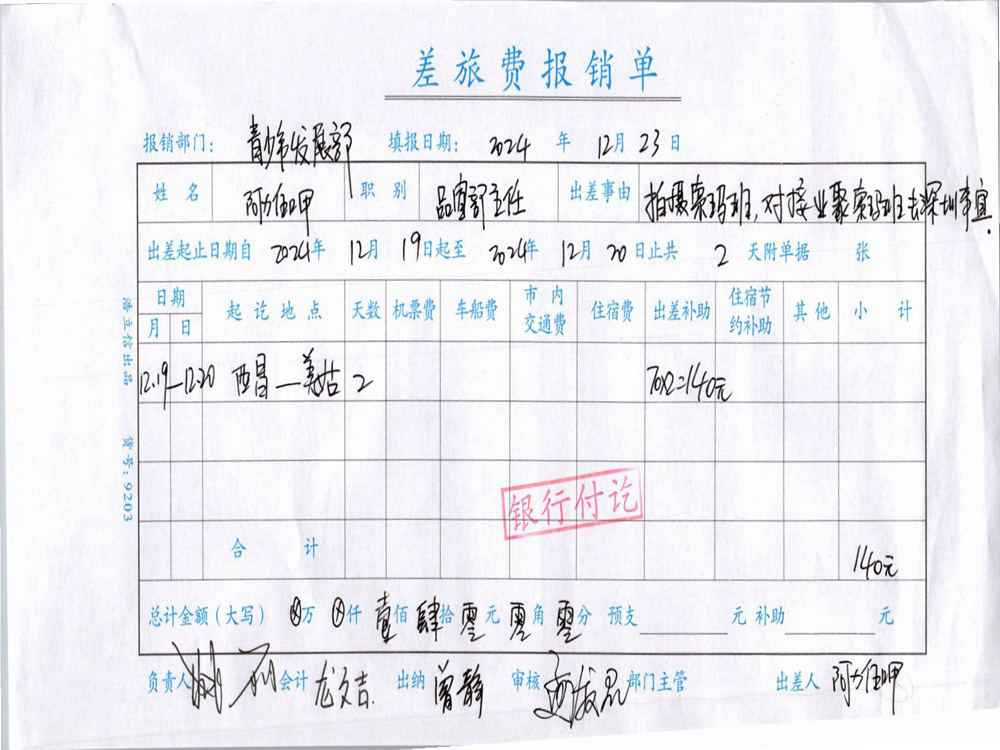 差旅费报销单
报销部门: 青少年发展部 填报日期: 2024 年 12月 23日
姓名 阿力伍呷 职别 品宣部主任 出差事由 拍摄索玛班,对接业聚索玛班去深圳事宜.
出差起止日期自 2024年 12月 19日起至 2024年 12月 20日止共 2 天附单据 张
日期 起讫地点 天数 机票费 车船费 市内交通费 住宿费 出差补助 住宿节约补助 其他 小计
月 日
12.19—12.20 西昌—美姑 2 70x2=140元
银行付讫
合计 140元
总计金额(大写) ⊗万 ⊗仟 壹佰 肆拾 零元 零角 零分 预支 元 补助 元
负责人 会计 龙文吉 出纳 曾静 审核 部门主管 出差人 阿力伍呷
浩立信出品 货号:9203